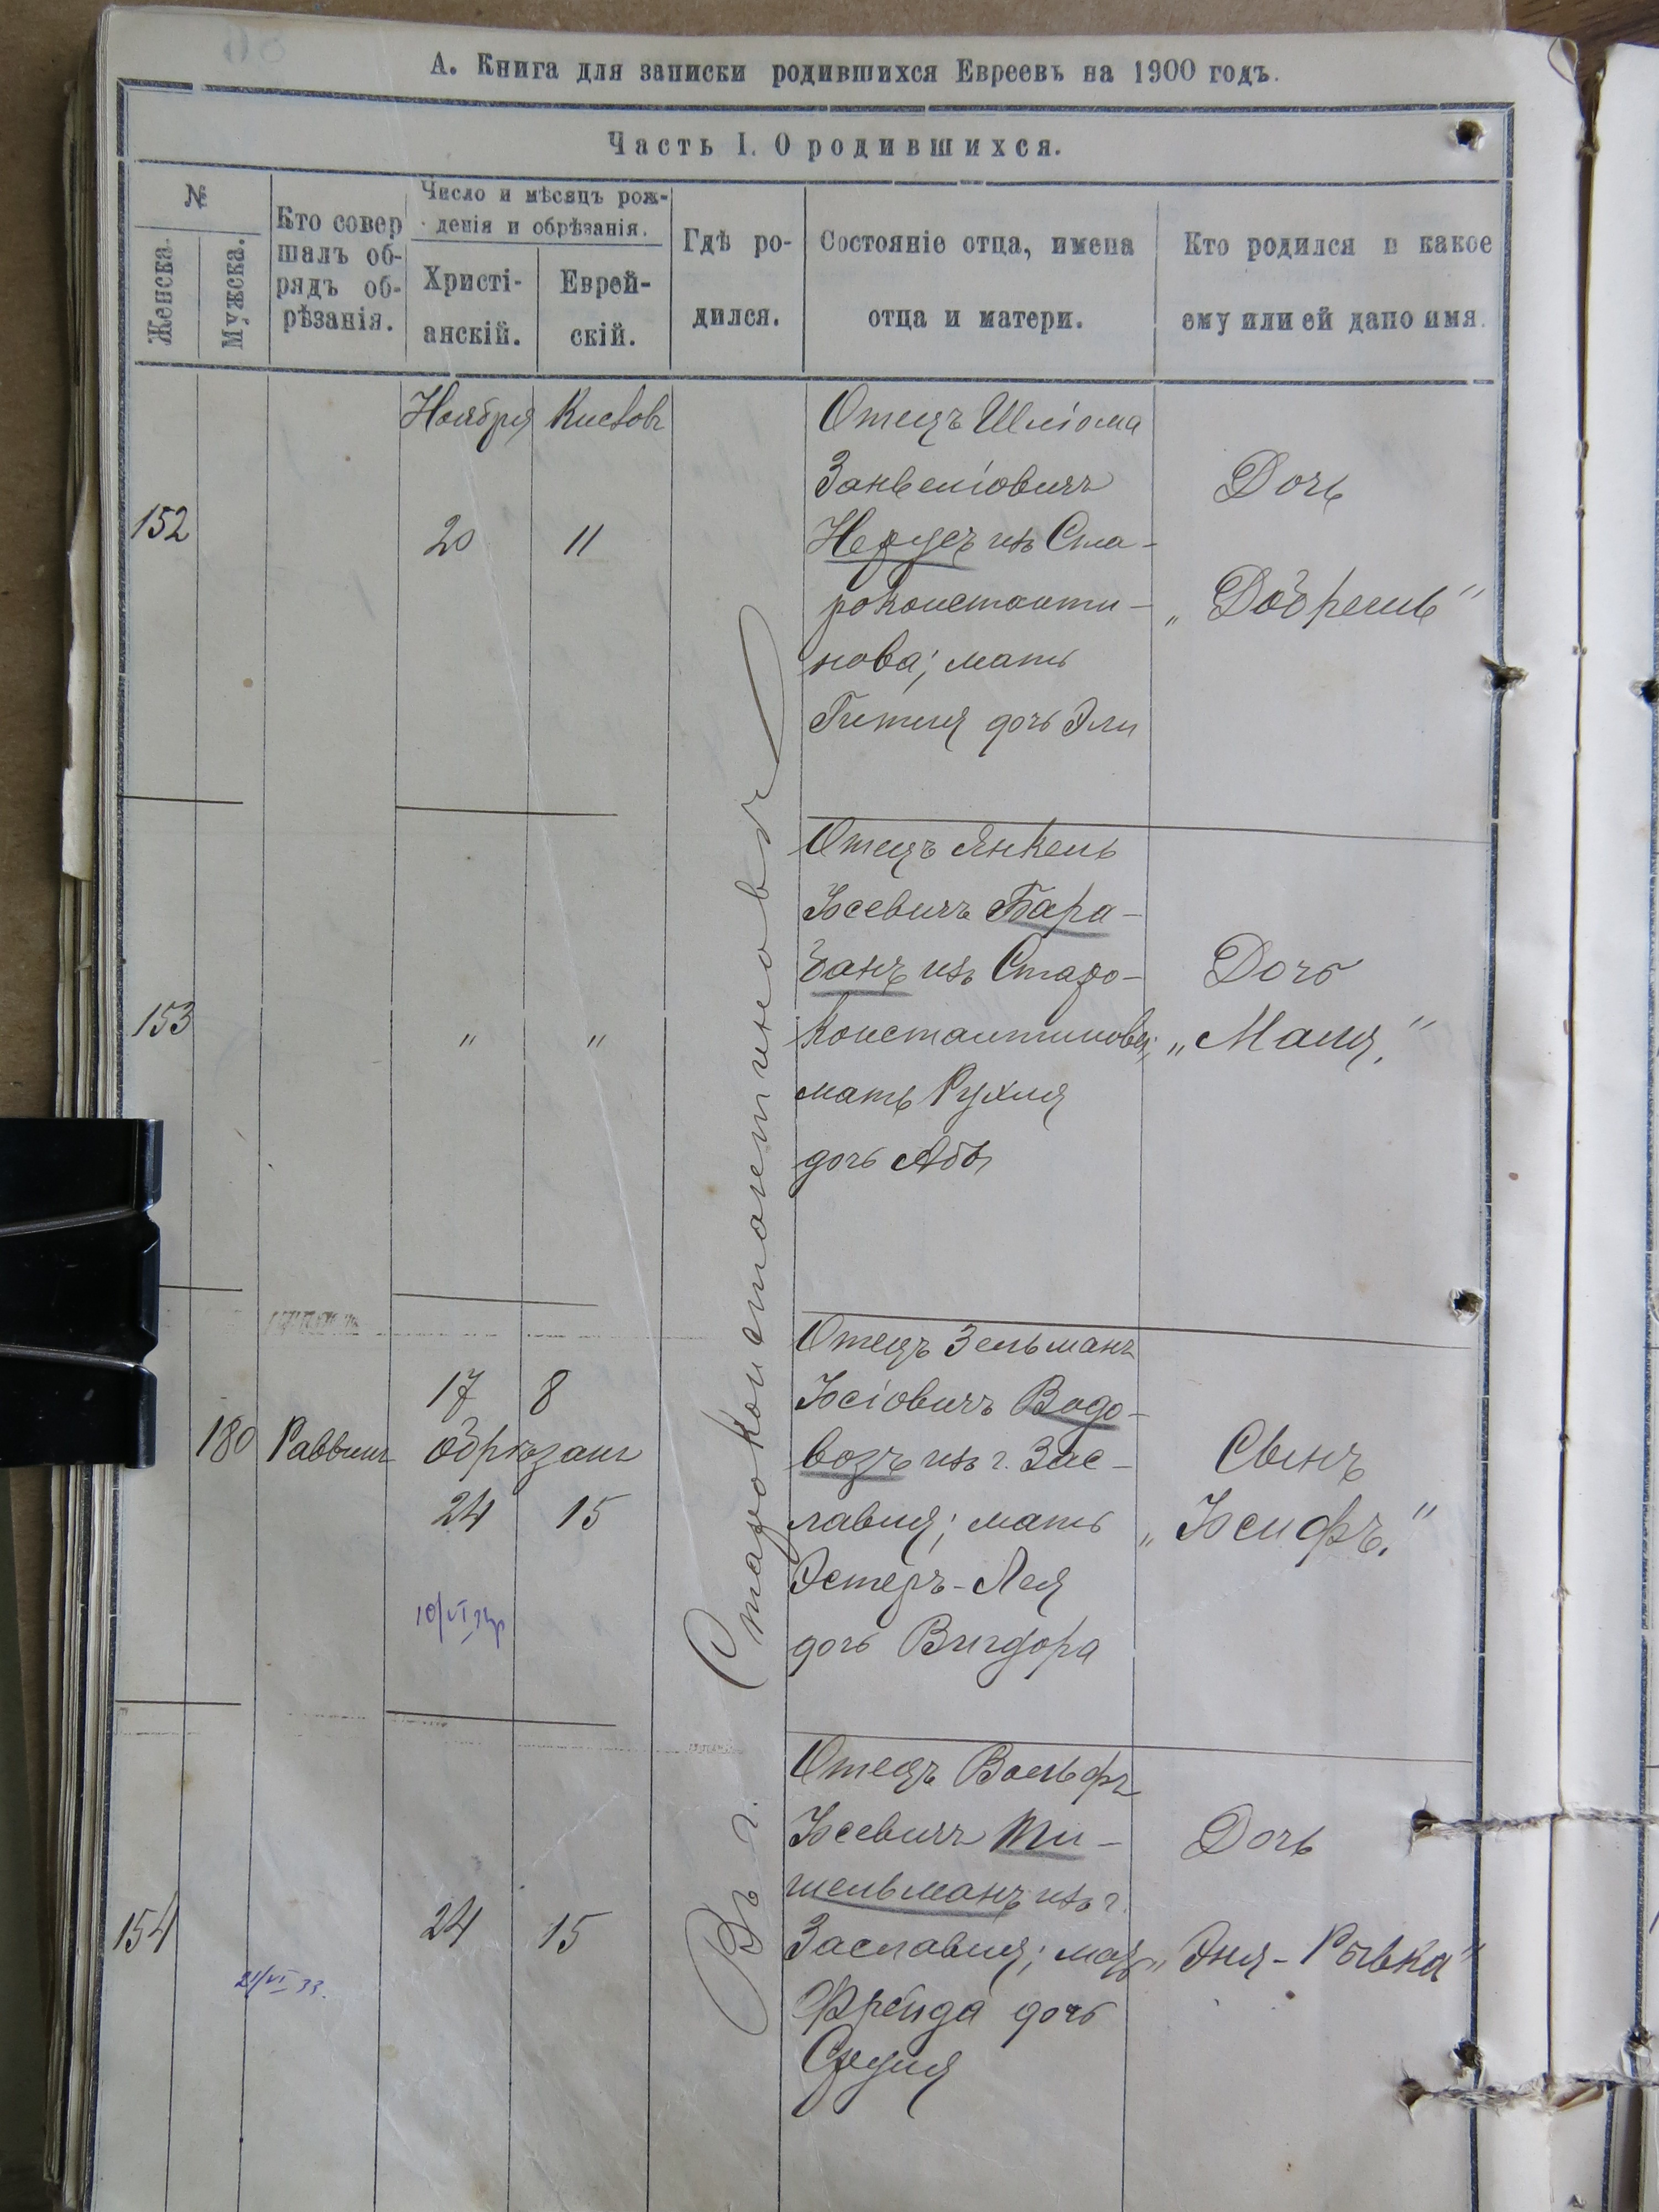 А. Книга для записки родившихся Евреевъ на 1900 годъ.
Часть I. О родившихся.
№
Женска.
Мужска.
Кто совер
шалъ об-
рядъ об-
рѣзанія.
Число и мѣсяцъ рож-
денія и обрѣзанія.
Христі-
анскій.
Еврей-
скій.
Гдѣ ро-
дился.
Состояніе отца, имена
отца и матери.
Кто родился и какое
ему или ей дано имя.
Ноября Кислевъ
152
20 11
Въ г. Староконстантиновѣ
Отецъ Шліома
Занвеліовичъ
изъ Ста-
роконстанти-
нова; мать
Гитля дочь Эли
Дочь
„Добрешъ“
153
" "
Отецъ Янкель
Іосевичъ Бара-
банъ изъ Старо-
константинова;
мать Рухля
дочь Абы
Дочь
„Маня.“
180 Раввинъ
17 8
обрѣзанъ
24 15
Отецъ Зельманъ
Іосіовичъ Водо-
возъ изъ г. Зас-
лавля; мать
Эстеръ-Лея
дочь Вигдора
Сынъ
„Іосифъ.“
154
24 15
21/VI 33.
Отецъ Вольфъ
Іосевичъ Ти-
шельманъ изъ г.
Заславля; мать
Фрейда дочь
Сруля
Дочь
„Эня-Рывка“